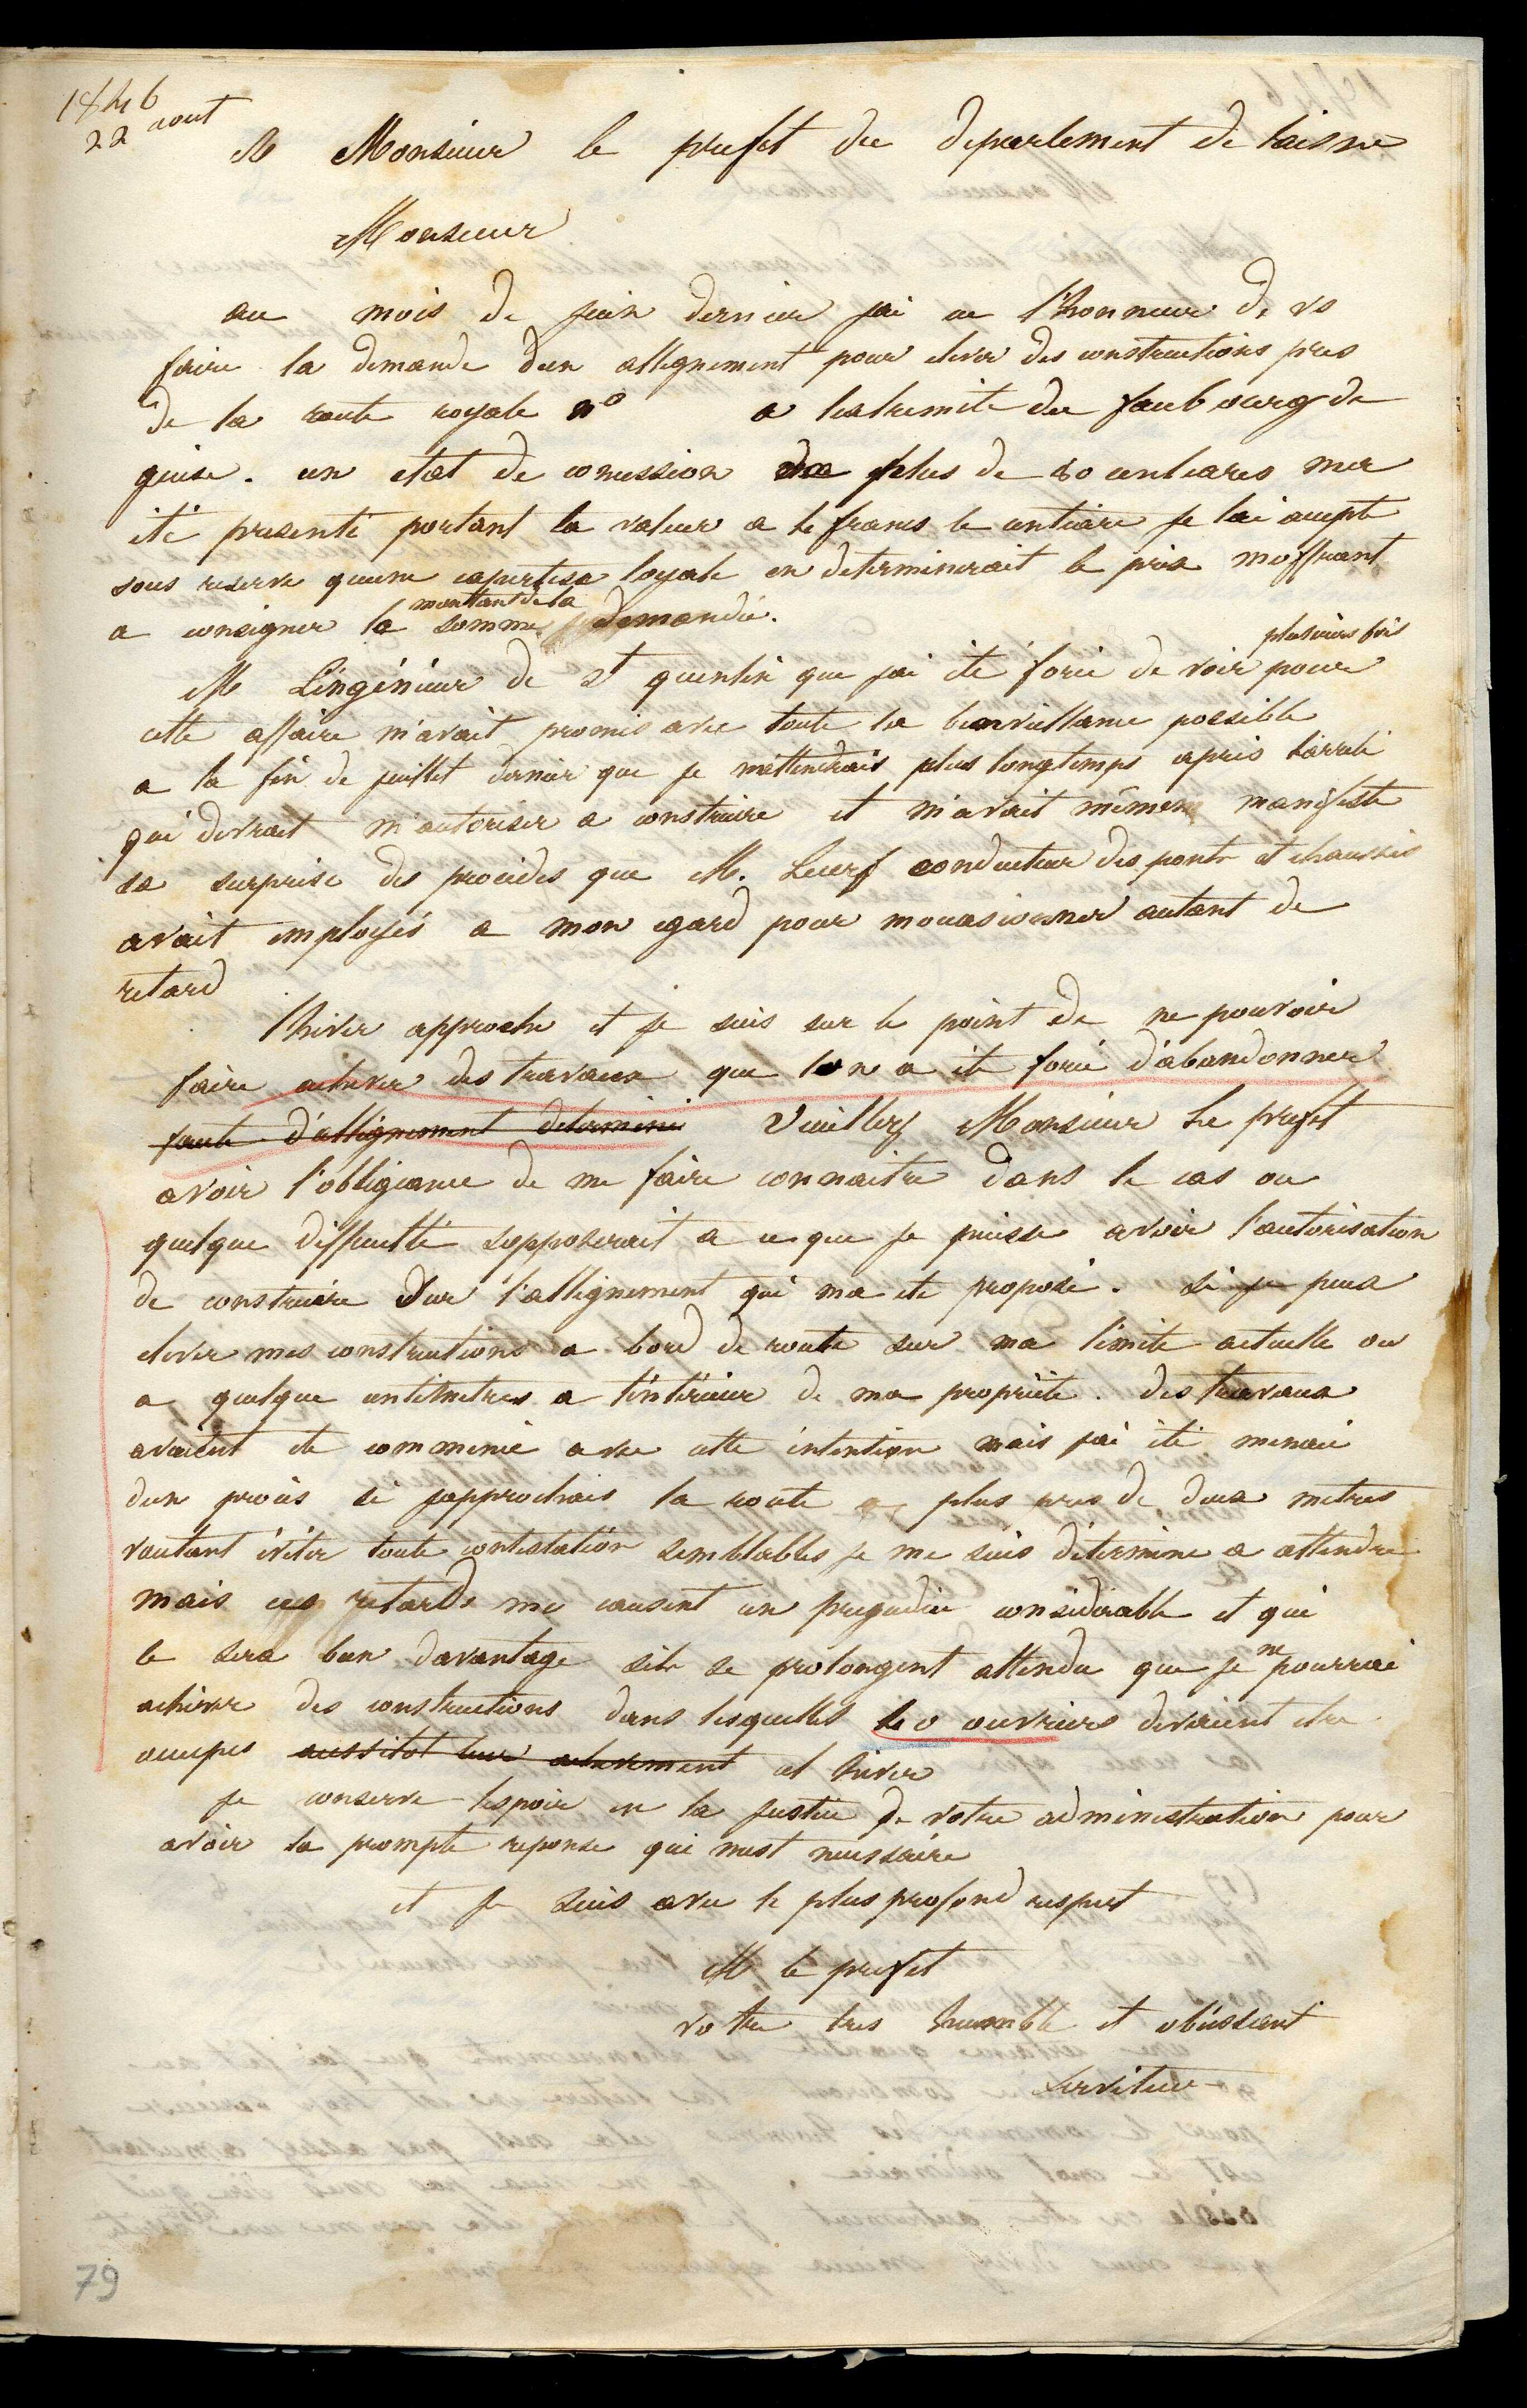 1846
22 aout
A Monsieur le prefet du departement de laisne
Monsieur
au mois de juin dernier jai eu l'honneur de vs
faire la demande dun allignement pour elever des constructions pres
de la route royale n° a lextremite du faubourg de
guise. un etat de concession de plus de 80 centiares ma
été presenté portant la valeur a le francs le centiare je lai accepte
sous reserve quune expertise loyale en determinerait le prix moffrant
a consigner la somme montant de la demandée.
M Lingénieur de St quentin que jai été forcé de voir plusieurs fois pour
cette affaire m'avait promis avec toute la bienveillance possible
a la fin de juillet dernier que je nattendrais plus longtemps apres larreté
qui devrait m'autoriser a construire et m'avait même manifesté
sa surprise des procédes que M. Lecerf conducteur des ponts et chaussés
avait employés a mon egard pour moccasionner autant de
retard
l'hiver approche et je suis sur le point de ne pouvoir
faire achever des travaux que lon a été forcé d'abandonner
faute d'allignement determiné Veuillez Monsieur Le prefet
avoir l'obligeance de me faire connaitre dans le cas ou
quelque difficulté sopposerait a ce que je puisse avoir l'autorisation
de construire sur l'allignement qui ma ete proposé. si je peux
elever mes constructions a bord de route sur ma limite actuelle ou
a quelque centimetres a l'intérieur de ma propriété. des travaux
avaient ete commencé avec cette intention mais jai été menacé
dun procès si japprochais la route plus pres de deux metres
voulant éviter toute contestation semblables je me suis déterminé a attendre
mais ces retards me causent un prejudice considérable et qui
le sera bien davantage sils se prolongent attendu que je ne pourrai
achever des constructions dans lesquelles ouvriers devaient etre
occupés aussitot leur achevement cet hiver
je conserve lespoir en la justice de votre administration pour
avoir la prompte reponse qui mest necessaire
et je suis avec le plus profond respect
M le prefet
votre tres humble et obéissant
serviteur
79